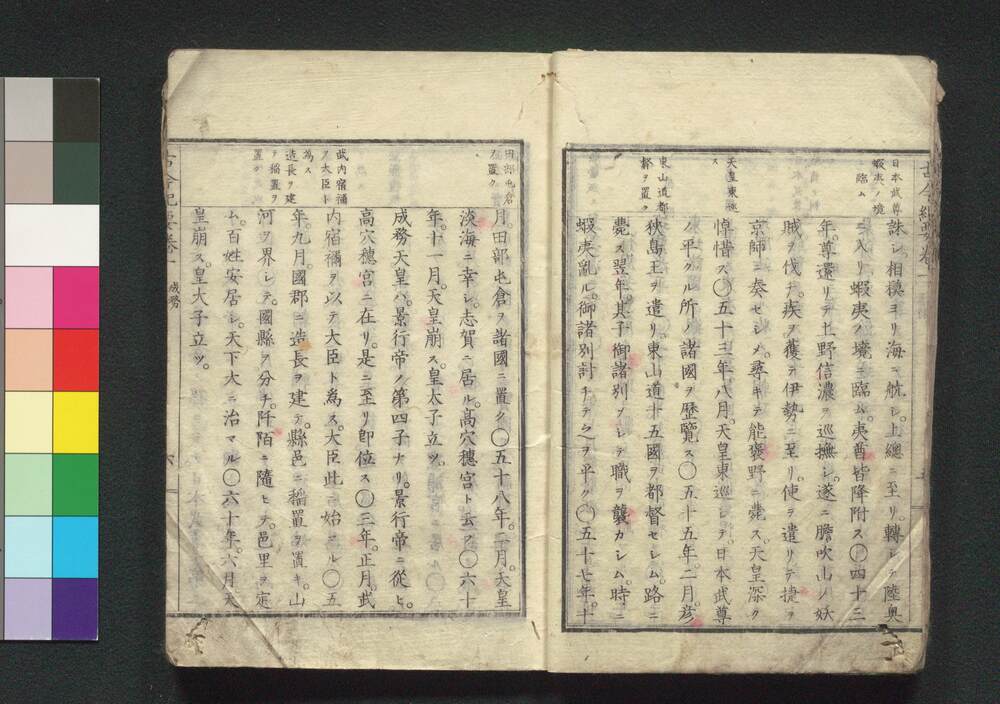 日本武尊
蝦夷ノ境
ニ臨ム
誅シ。相模ヨリ海ニ航シ。上總ニ至リ。轉シテ陸奥
ニ入リ蝦夷ノ境ニ臨ム。夷酋皆降附ス〇四十三
年。尊還リテ上野信濃ヲ巡撫シ。遂ニ膽吹山ノ妖
賊ヲ伐チ。疾ヲ獲テ伊勢ニ至リ。使ヲ遣リテ捷ヲ
京師ニ奏セシメ。尋キテ能褒野ニ薨ス。天皇深ク
天皇東巡
ス
悼惜ス〇五十三年。八月。天皇東巡シテ。日本武尊
ノ平クル所ノ諸國ヲ歴覽ス〇五十五年。二月。彦
東山道都
督ヲ置ク
狹島王ヲ遣リ。東山道十五國ヲ都督セシム。路ニ
薨ス翌年。其子御諸別ヲシテ職ヲ襲カシム。時ニ
蝦夷亂ル。御諸別討チテ之ヲ平ク〇五十七年。十
田部屯倉
ヲ置ク
月。田部屯倉ヲ諸國ニ置ク〇五十八年。二月。天皇
淡海ニ幸シ。志賀ニ居ル。高穴穗宮ト云フ〇六十
年。十一月。天皇崩ス。皇太子立ツ。
成務天皇ハ。景行帝ノ第四子ナリ。景行帝ニ從ヒ。
高穴穗宮ニ在リ。是ニ至リ卽位ス〇三年。正月。武
武内宿禰
ヲ大臣ト
爲ス
内宿禰ヲ以テ大臣ト爲ス。大臣此ニ始マル〇五
造長ヲ建
テ稻置ヲ
置ク
年。九月。國郡ニ造長ヲ建テ。縣邑ニ稻置ヲ置キ。山
河ヲ界シテ。國縣ヲ分チ。阡陌ニ隨ヒテ。邑里ヲ定
ム。百姓安居シ。天下大ニ治マル〇六十年。六月。天
皇崩ス。皇太子立ツ。
成務